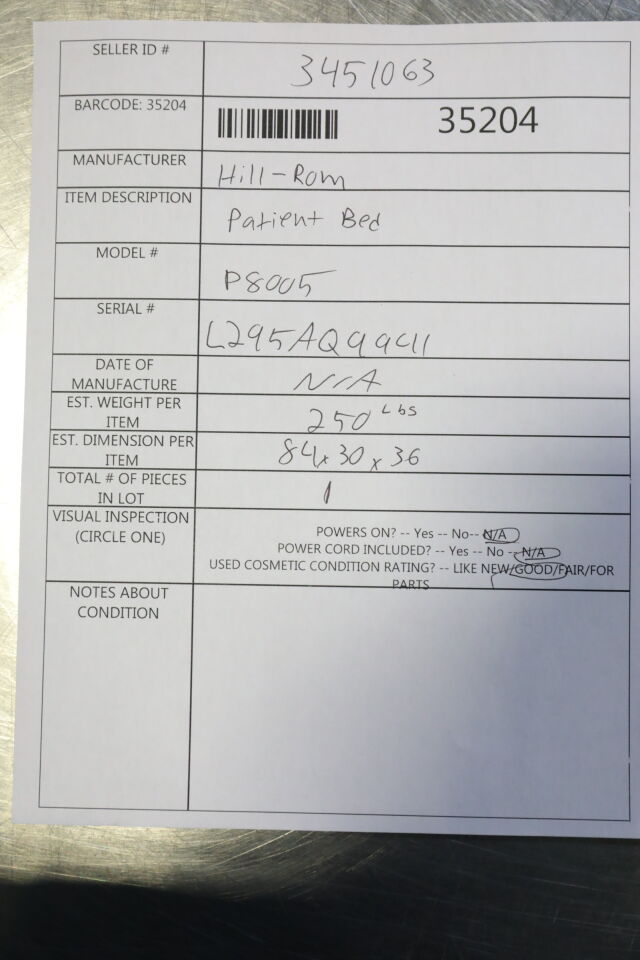 SELLER ID # 3451063
BARCODE: 35204 35204
MANUFACTURER Hill-Rom
ITEM DESCRIPTION Patient Bed
MODEL # P8005
SERIAL # L295AQ9941
DATE OF
MANUFACTURE N/A
EST. WEIGHT PER
ITEM 250 Lbs
EST. DIMENSION PER
ITEM 84x30x36
TOTAL # OF PIECES
IN LOT 1
VISUAL INSPECTION
(CIRCLE ONE)
POWERS ON? -- Yes -- No-- N/A
POWER CORD INCLUDED? -- Yes -- No -- N/A
USED COSMETIC CONDITION RATING? -- LIKE NEW/GOOD/FAIR/FOR
PARTS
NOTES ABOUT
CONDITION